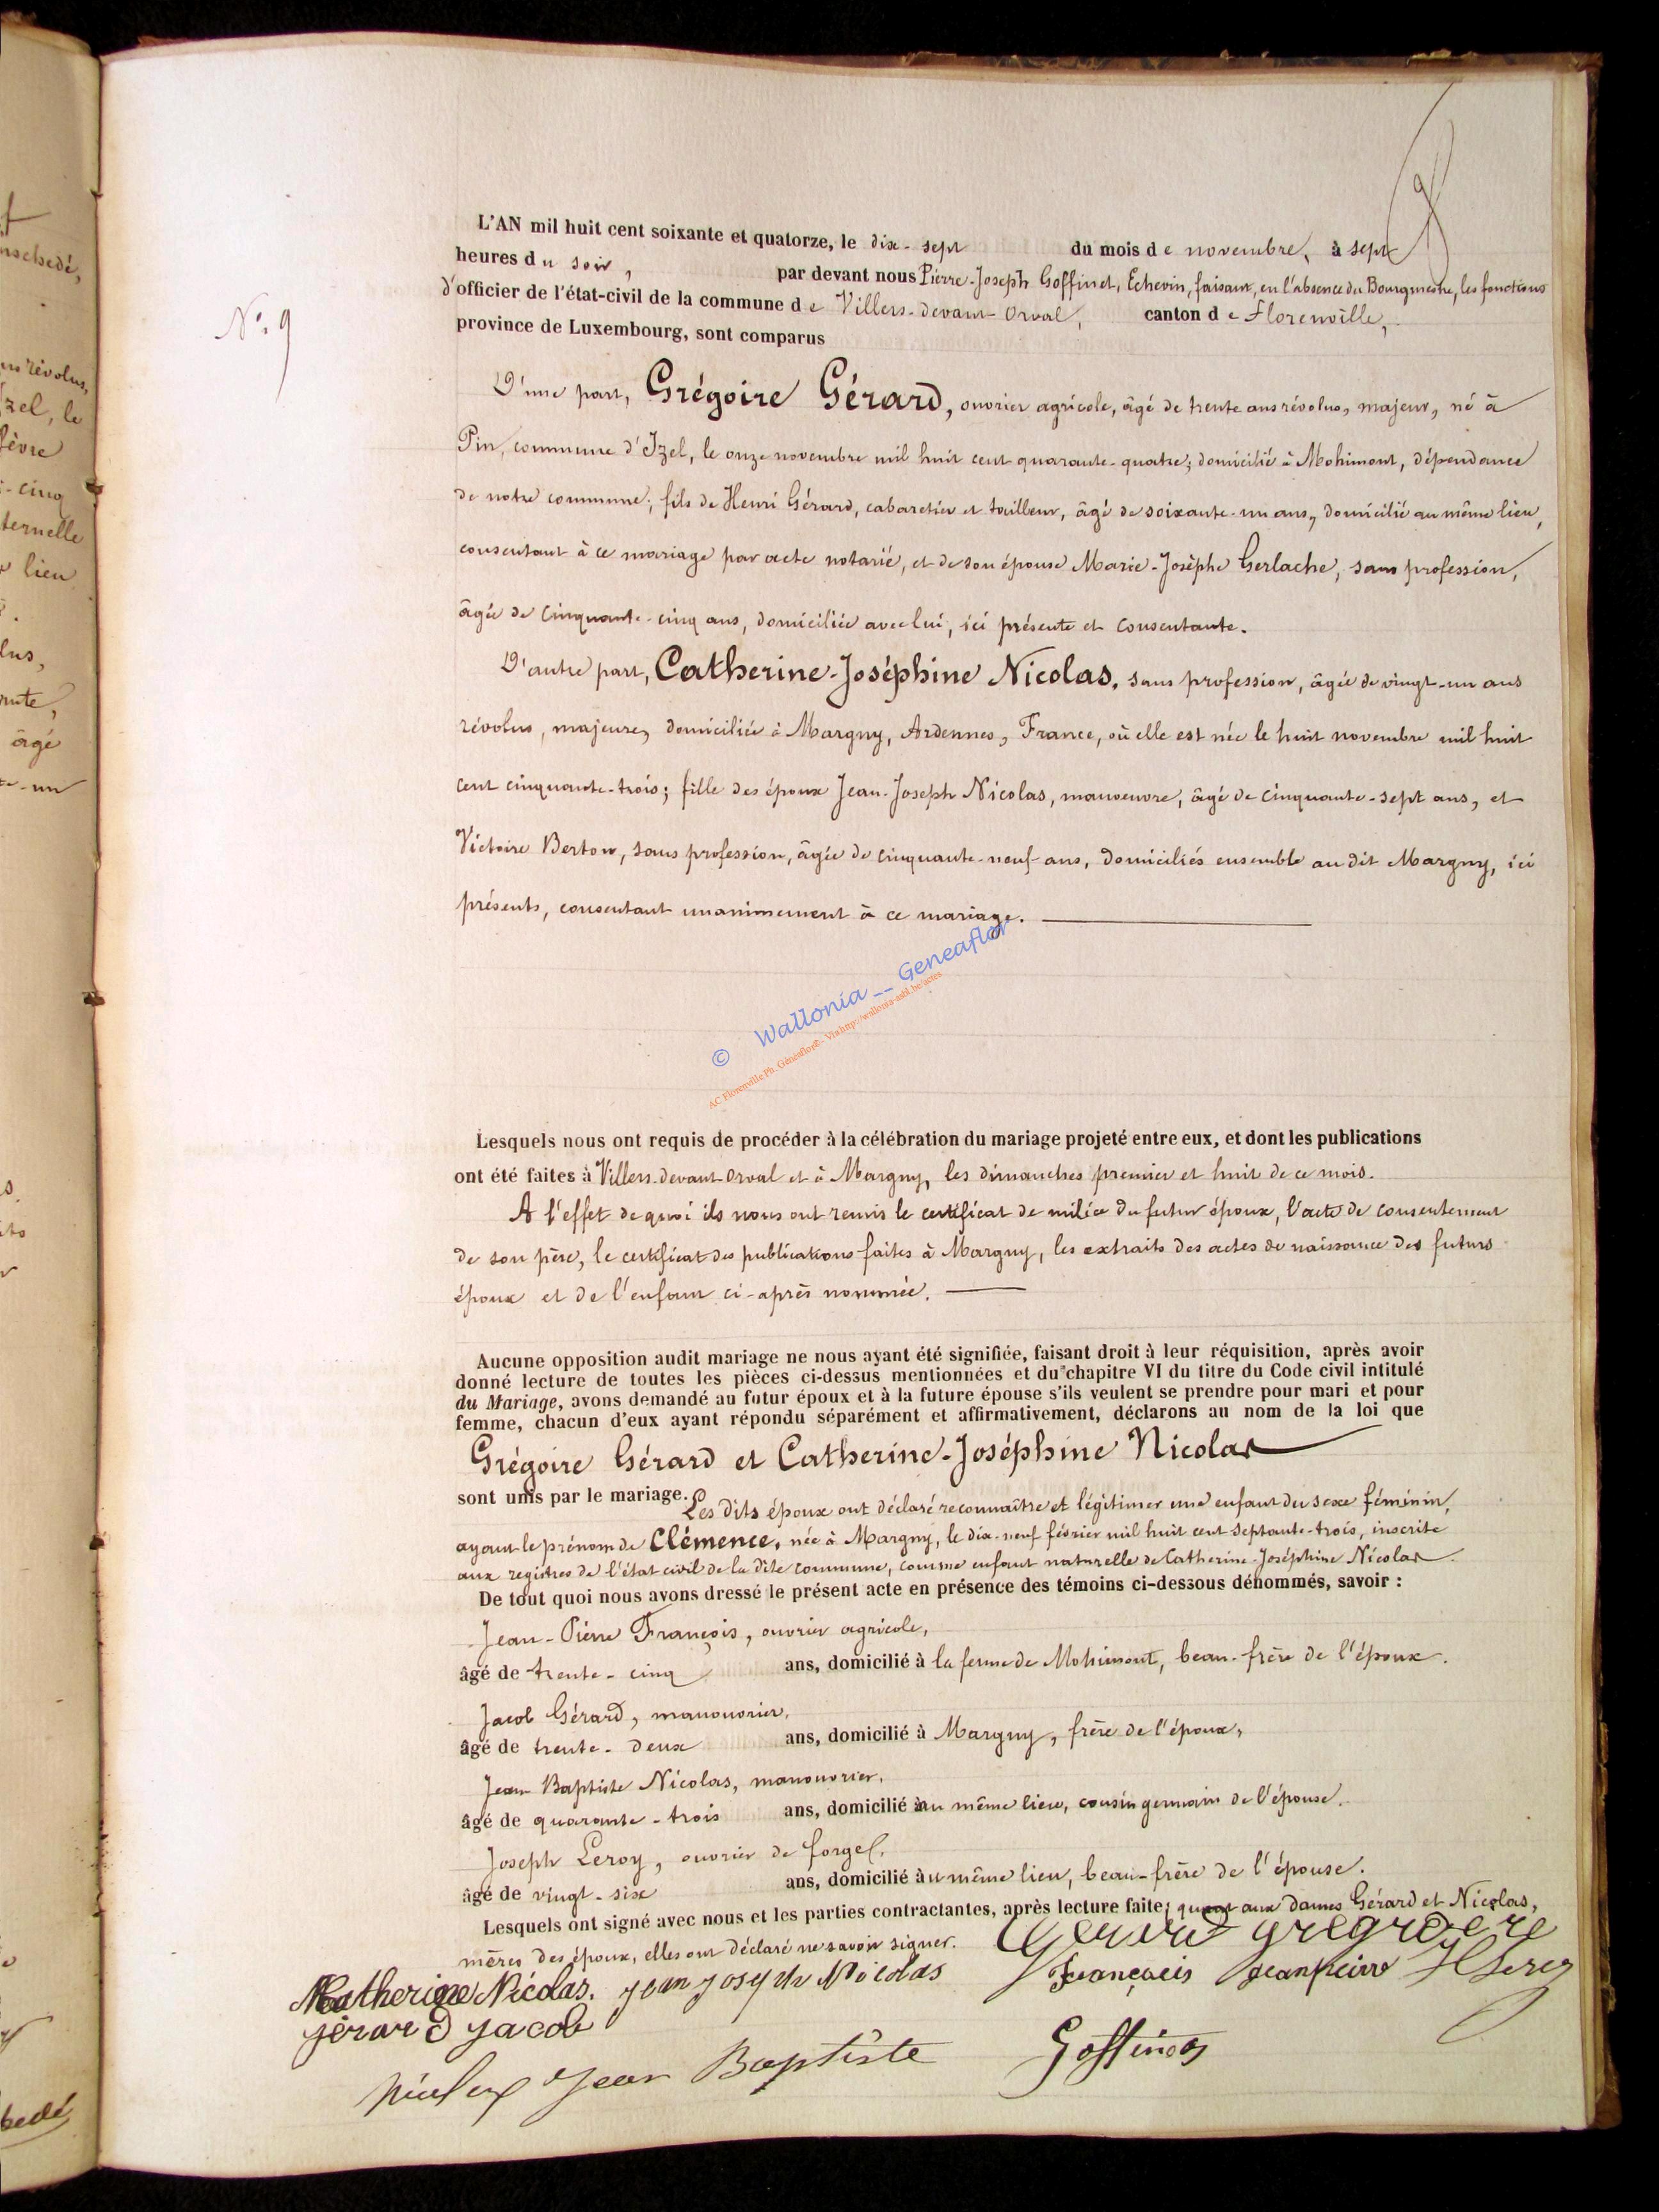 L'AN mil huit cent soixante et quatorze, le dix-sept du mois de novembre, à sept
heures du soir, par devant nous Pierre-Joseph Goffinet, Echevin, faisant, en l'absence du Bourgmestre, les fonctions
d'officier de l'état-civil de la commune de Villers-devant-Orval, canton de Florenville,
province de Luxembourg, sont comparus
N°. 9
D'une part, Grégoire Gérard, ouvrier agricole, âgé de trente ans révolus, majeur, né à
Pin, commune d'Izel, le onze novembre mil huit cent quarante-quatre; domicilié à Mohimont, dépendance
de notre commune; fils de Henri Gérard, cabaretier et tailleur, âgé de soixante-un ans, domicilié au même lieu,
consentant à ce mariage par acte notarié, et de son épouse Marie-Josèphe Gerlache, sans profession,
âgée de cinquante-cinq ans, domiciliée avec lui, ici présente et consentante.
D'autre part, Catherine-Joséphine Nicolas, sans profession, âgée de vingt-un ans
révolus, majeure, domiciliée à Margny, Ardennes, France, où elle est née le huit novembre mil huit
cent cinquante-trois; fille des époux Jean-Joseph Nicolas, manoeuvre, âgé de cinquante-sept ans, et
Victoire Berton, sans profession, âgée de cinquante-neuf ans, domiciliés ensemble au dit Margny, ici
présents, consentant unanimement à ce mariage.
© Wallonia __ Geneaflor
AC Florenville Ph. Généaflor® - Via http://wallonia-asbl.be/actes
Lesquels nous ont requis de procéder à la célébration du mariage projeté entre eux, et dont les publications
ont été faites à Villers-devant-Orval et à Margny, les dimanches premier et huit de ce mois.
A l'effet de quoi ils nous ont remis le certificat de milice du futur époux, l'acte de consentement
de son père, le certificat des publications faites à Margny, les extraits des actes de naissance des futurs
époux et de l'enfant ci-après nommée.
Aucune opposition audit mariage ne nous ayant été signifiée, faisant droit à leur réquisition, après avoir
donné lecture de toutes les pièces ci-dessus mentionnées et du chapitre VI du titre du Code civil intitulé
du Mariage, avons demandé au futur époux et à la future épouse s'ils veulent se prendre pour mari et pour
femme, chacun d'eux ayant répondu séparément et affirmativement, déclarons au nom de la loi que
Grégoire Gérard et Catherine-Joséphine Nicolas
sont unis par le mariage. Les dits époux ont déclaré reconnaître et légitimer une enfant du sexe féminin,
ayant le prénom de Clémence, née à Margny, le dix-neuf février mil huit cent septante-trois, inscrite
aux registres de l'état civil de la dite commune, comme enfant naturelle de Catherine-Joséphine Nicolas.
De tout quoi nous avons dressé le présent acte en présence des témoins ci-dessous dénommés, savoir :
Jean-Pierre François, ouvrier agricole,
âgé de trente-cinq ans, domicilié à la ferme de Mohimont, beau-frère de l'époux.
Jacob Gérard, manouvrier,
âgé de trente-deux ans, domicilié à Margny, frère de l'époux,
Jean Baptiste Nicolas, manouvrier,
âgé de quarante-trois ans, domicilié au même lieu, cousin germain de l'épouse.
Joseph Leroy, ouvrier de forges,
âgé de vingt-six ans, domicilié au même lieu, beau-frère de l'épouse.
Lesquels ont signé avec nous et les parties contractantes, après lecture faite; quant aux dames Gérard et Nicolas,
mères des époux, elles ont déclaré ne savoir signer. Gerard gregroere
Catherine Nicolas. jean joseph Nicolas François jeanpeirre
jérard jacob
Jean Baptiste Goffinet